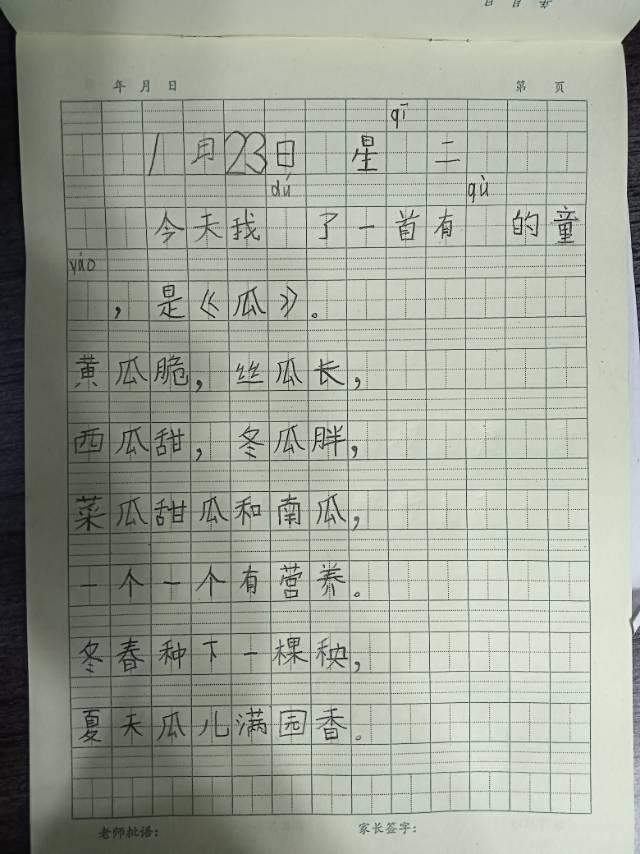 年 月 日
年 月 日 第 页
qī
1月23日 星 二
dú qù
今天我 了一首有 的童
yáo
,是《瓜》。
黄瓜脆,丝瓜长,
西瓜甜,冬瓜胖,
菜瓜甜瓜和南瓜,
一个一个有营养。
冬春种下一棵秧,
夏天瓜儿满园香。
老师批语: 家长签字: